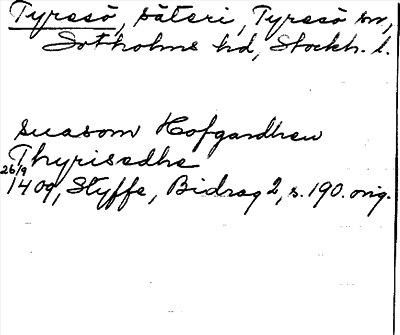 Tyresö, säteri, Tyresö sn,
Sotholms hd, Stockh. l.
suasom Hofgardhen
Thyrisedhe
26/9
1409, Styffe, Bidrag 2, s. 190. orig.